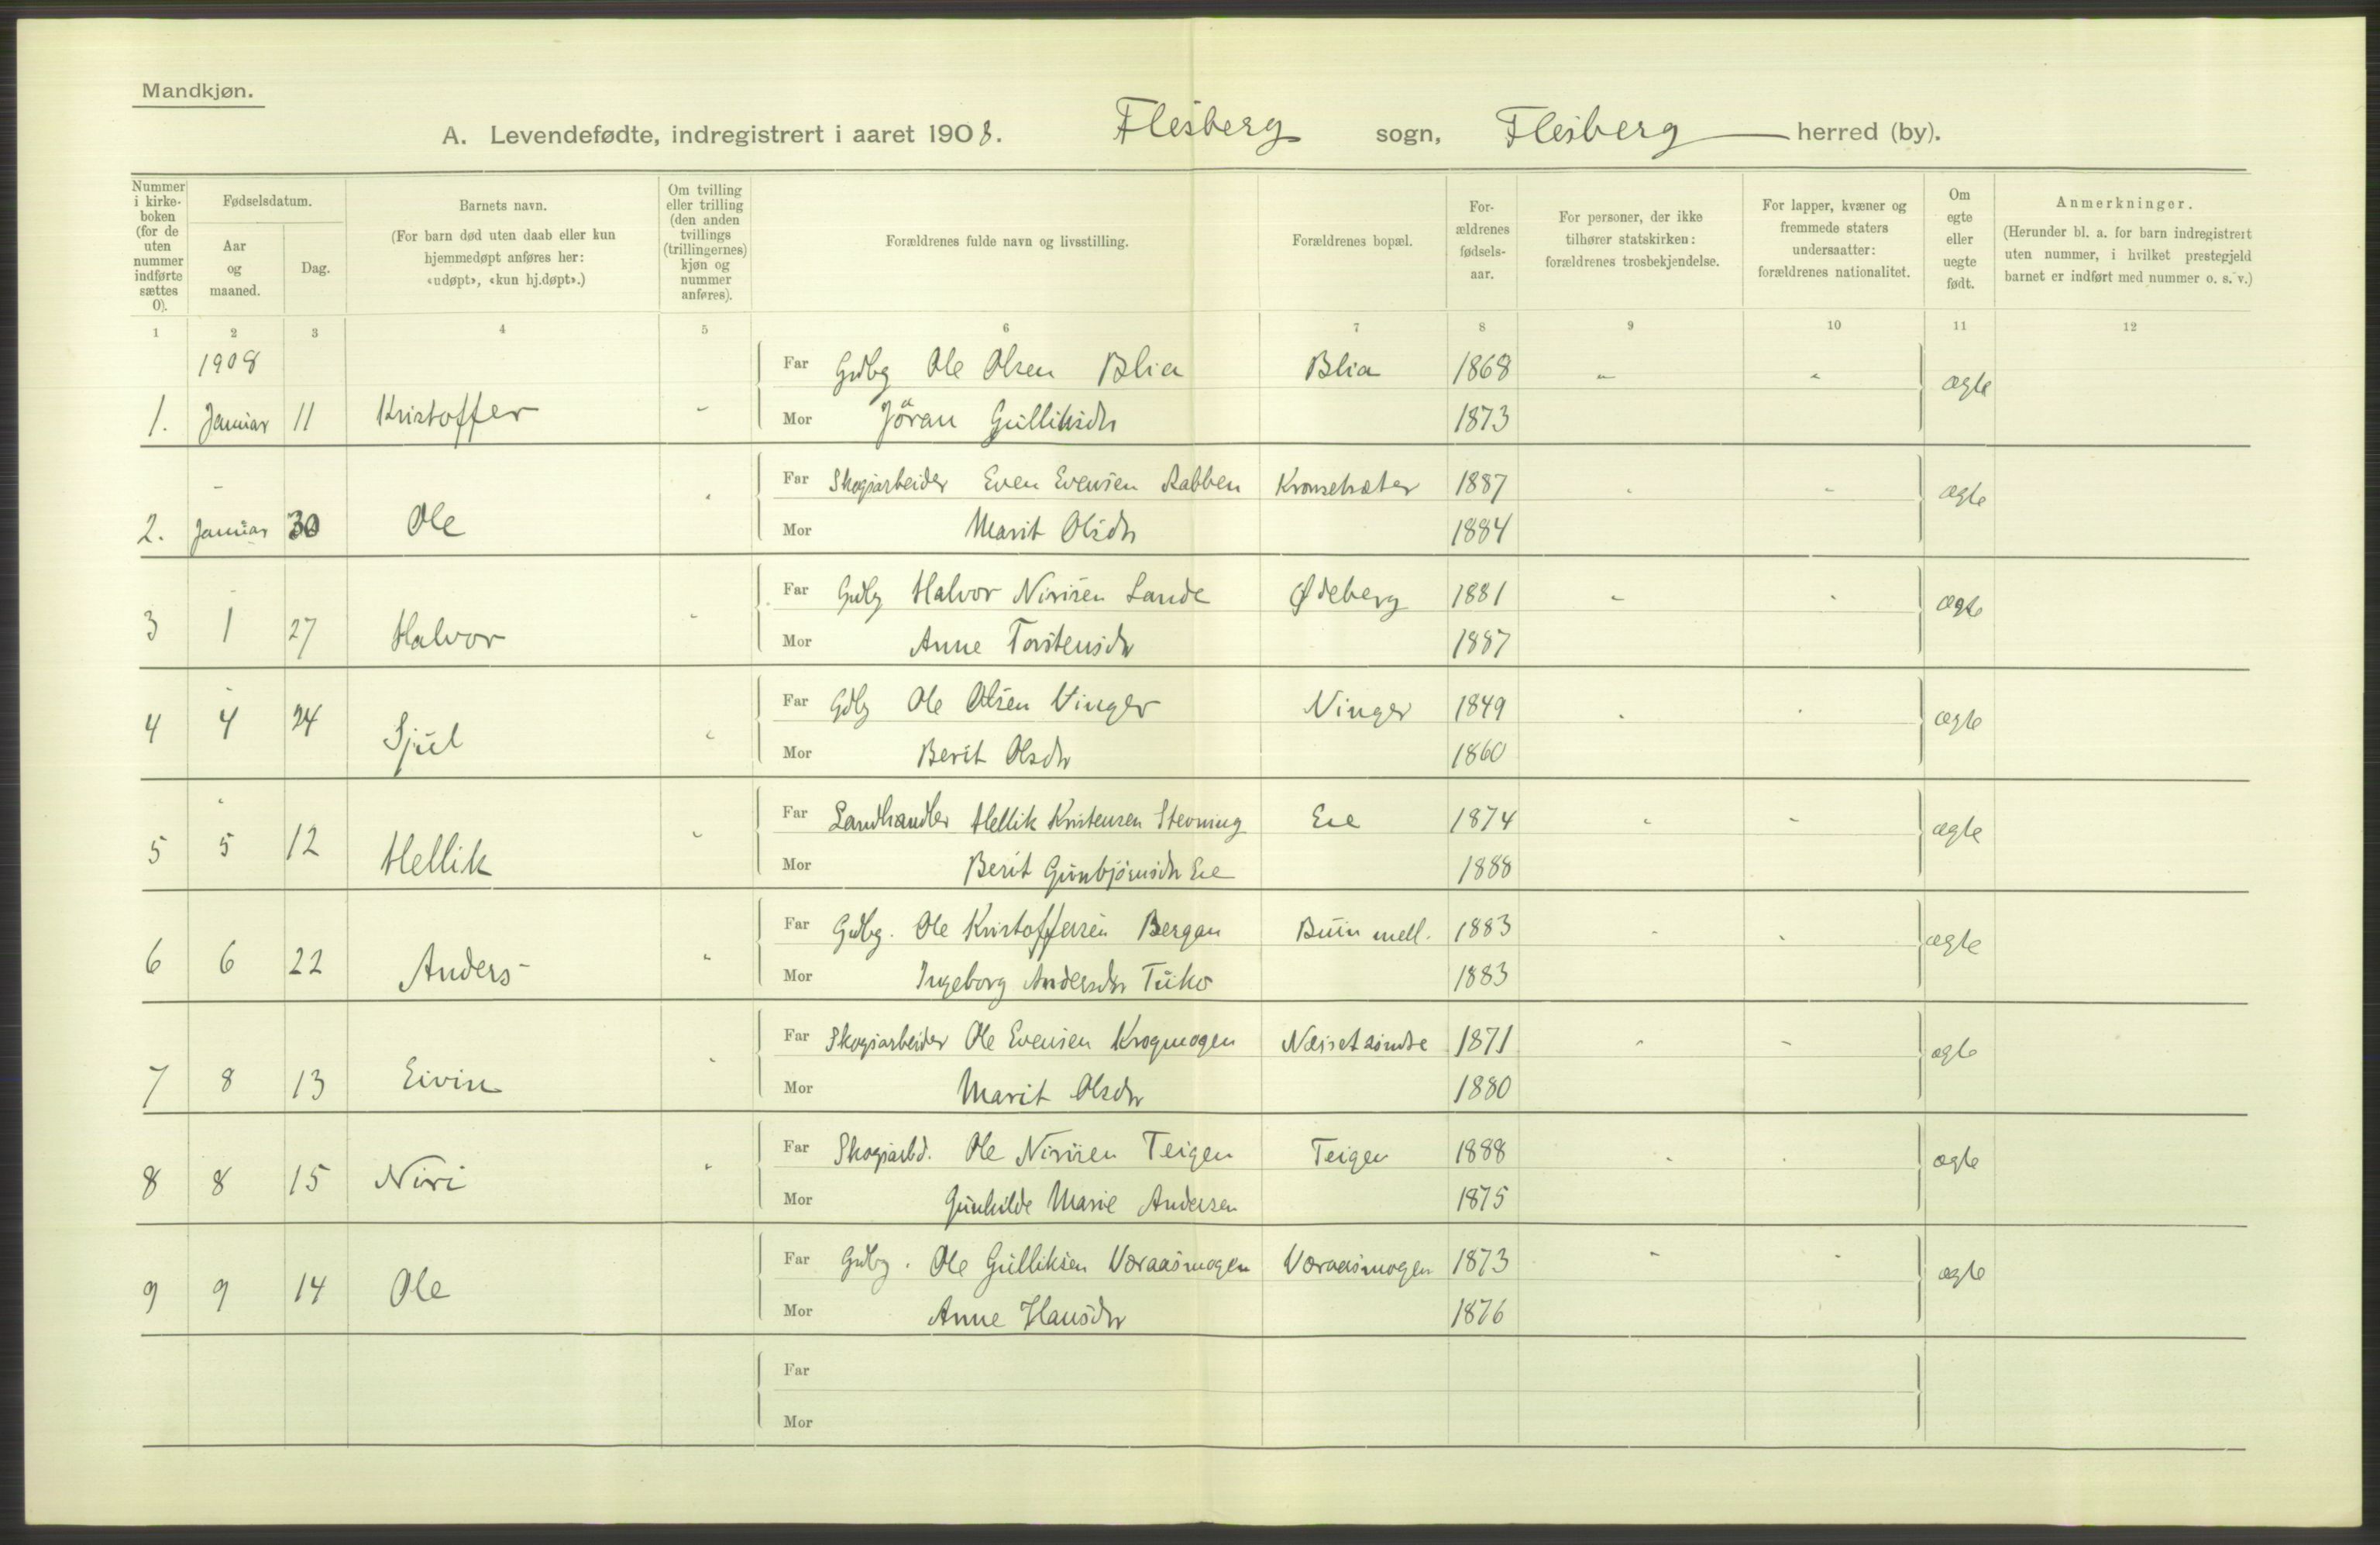 Mandkjøn.
A. Levendefødte, indregistrert i aaret 1908. Flesberg sogn, Flesberg herred (by).
Nummer i kirkeboken (for de uten nummer indførte sættes 0).
Fødselsdatum.
Aar og maaned.
Dag.
Barnets navn.
(For barn død uten daab eller kun hjemmedøpt anføres her: «udøpt», «kun hj.døpt».)
Om tvilling eller trilling (den anden tvillings (trillingernes) kjøn og nummer anføres).
Forældrenes fulde navn og livsstilling.
Forældrenes bopæl.
Forældrenes fødselsaar.
For personer, der ikke tilhører statskirken: forældrenes trosbekjendelse.
For lapper, kvæner og fremmede staters undersaatter: forældrenes nationalitet.
Om egte eller uegte født.
Anmerkninger.
(Herunder bl. a. for barn indregistrert uten nummer, i hvilket prestegjeld barnet er indført med nummer o. s. v.)
1 2 3 4 5 6 7 8 9 10 11 12
1908
Far Gdbg Ole Olsen Blia Blia 1868 " " ægte
1. Januar 11 Kristoffer " Mor Jöran Gulliksdr 1873
Far Skogsarbeider Even Evensen Rabben 1887 " " ægte
2. Januar 30 Ole " Mor Marit Olsdr 1884
Far Gdbg Halvor Nirisen Lande Ødeberg 1881 " " ægte
3 1 27 Halvor " Mor Anne Torstensdr 1887
Far Gdbg Ole Olsen Vinger Vinger 1849 " " ægte
4 4 24 Sjul " Mor Berit Olsdr 1860
Far Landhandler Hellik Kristensen Stevning Eie 1874 " " ægte
5 5 12 Hellik " Mor Berit Gunbjørnsdr Eie 1888
Far Gdbg. Ole Kristoffersen Bergan Buin mell. 1883 " " ægte
6 6 22 Anders " Mor Ingeborg Andersdr 1883
Far Skogsarbeider Ole Evensen Krogmogen 1871 " " ægte
7 8 13 Eivin " Mor Marit Olsdr 1880
Far Skogsarbd. Ole Nirisen Teigen Teigen 1888 " " ægte
8 8 15 Niri " Mor Gunhilde Marie Andersen 1875
Far Gdbg. Ole Gulliksen Væraasmogen Væraasmogen 1873 " " ægte
9 9 14 Ole Mor Anne Hansdr 1876
Far
Mor